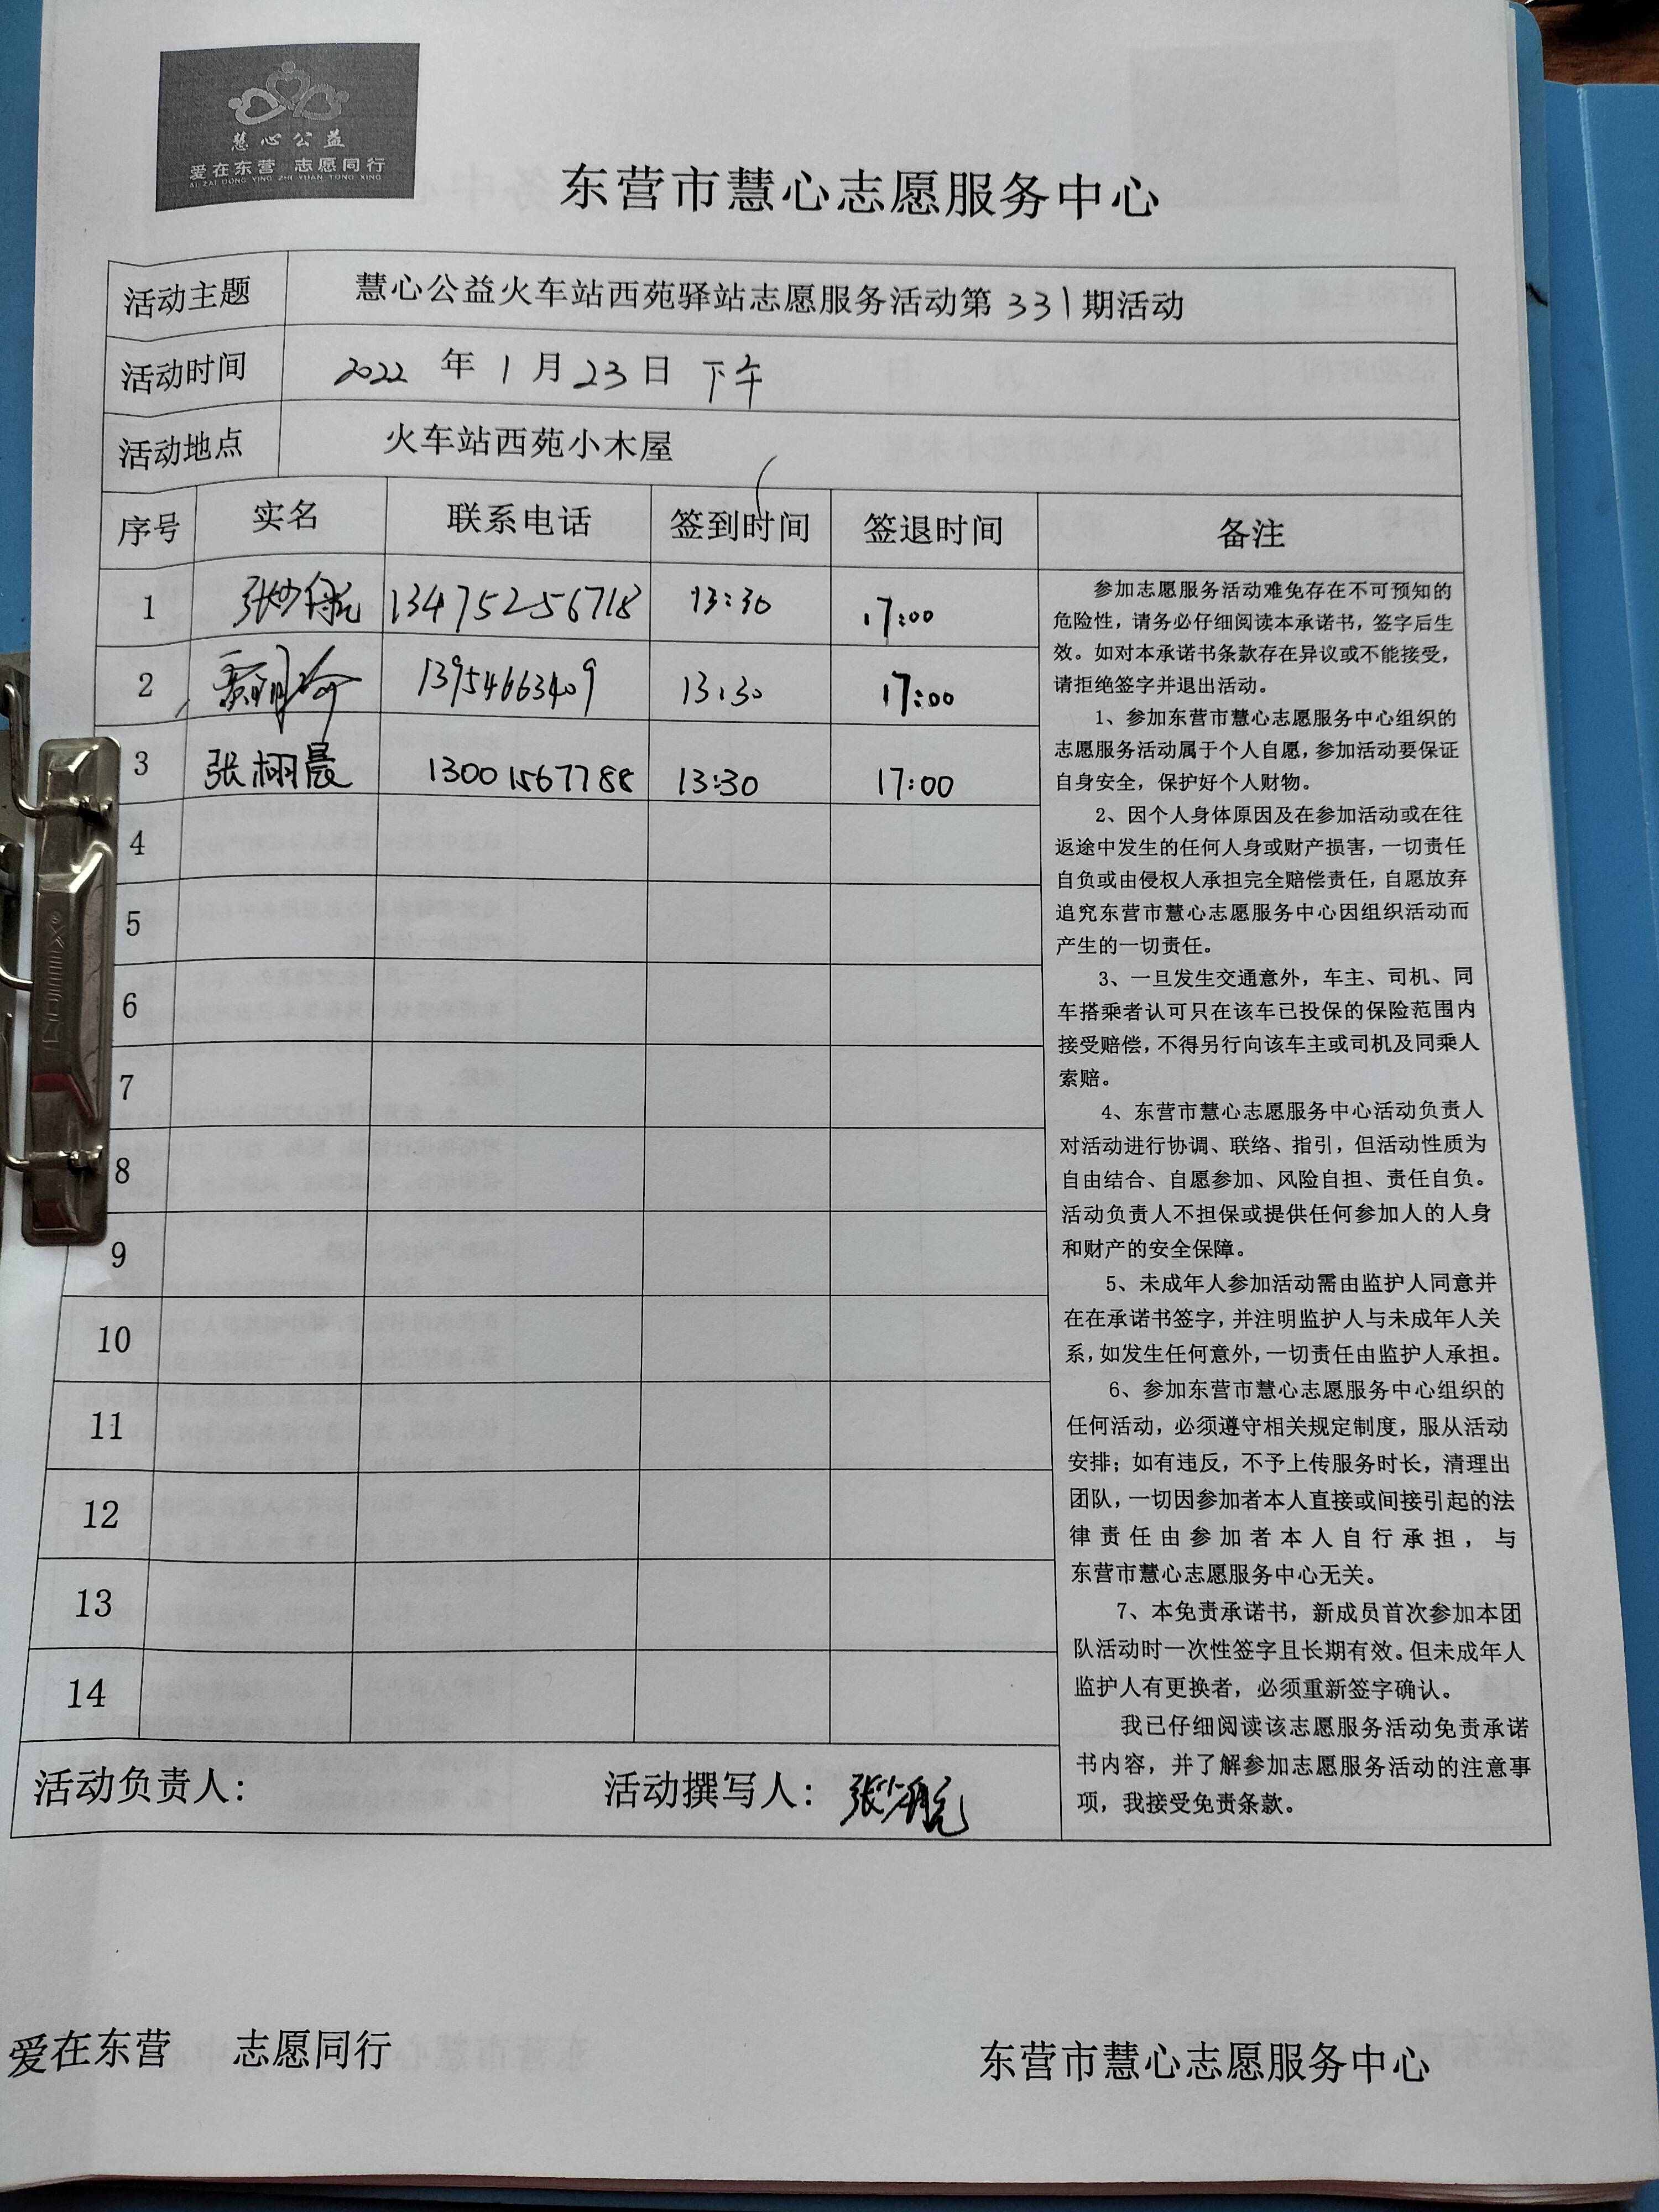 慧心公益
爱在东营 志愿同行
AI ZAI DONG YING ZHI YUAN TONG XING
东营市慧心志愿服务中心
活动主题 慧心公益火车站西苑驿站志愿服务活动第331期活动
活动时间 2022年1月23日 下午
活动地点 火车站西苑小木屋
序号 实名 联系电话 签到时间 签退时间 备注
1 13475256718 13:30 17:00
2 13954663409 13:30 17:00
3 张栩晨 13001567788 13:30 17:00
4
5
6
7
8
9
10
11
12
13
14
参加志愿服务活动难免存在不可预知的
危险性，请务必仔细阅读本承诺书，签字后生
效。如对本承诺书条款存在异议或不能接受，
请拒绝签字并退出活动。
1、参加东营市慧心志愿服务中心组织的
志愿服务活动属于个人自愿，参加活动要保证
自身安全，保护好个人财物。
2、因个人身体原因及在参加活动或在往
返途中发生的任何人身或财产损害，一切责任
自负或由侵权人承担完全赔偿责任，自愿放弃
追究东营市慧心志愿服务中心因组织活动而
产生的一切责任。
3、一旦发生交通意外，车主、司机、同
车搭乘者认可只在该车已投保的保险范围内
接受赔偿，不得另行向该车主或司机及同乘人
索赔。
4、东营市慧心志愿服务中心活动负责人
对活动进行协调、联络、指引，但活动性质为
自由结合、自愿参加、风险自担、责任自负。
活动负责人不担保或提供任何参加人的人身
和财产的安全保障。
5、未成年人参加活动需由监护人同意并
在在承诺书签字，并注明监护人与未成年人关
系，如发生任何意外，一切责任由监护人承担。
6、参加东营市慧心志愿服务中心组织的
任何活动，必须遵守相关规定制度，服从活动
安排；如有违反，不予上传服务时长，清理出
团队，一切因参加者本人直接或间接引起的法
律责任由参加者本人自行承担，与
东营市慧心志愿服务中心无关。
7、本免责承诺书，新成员首次参加本团
队活动时一次性签字且长期有效。但未成年人
监护人有更换者，必须重新签字确认。
我已仔细阅读该志愿服务活动免责承诺
书内容，并了解参加志愿服务活动的注意事
项，我接受免责条款。
活动负责人： 活动撰写人：
爱在东营 志愿同行 东营市慧心志愿服务中心